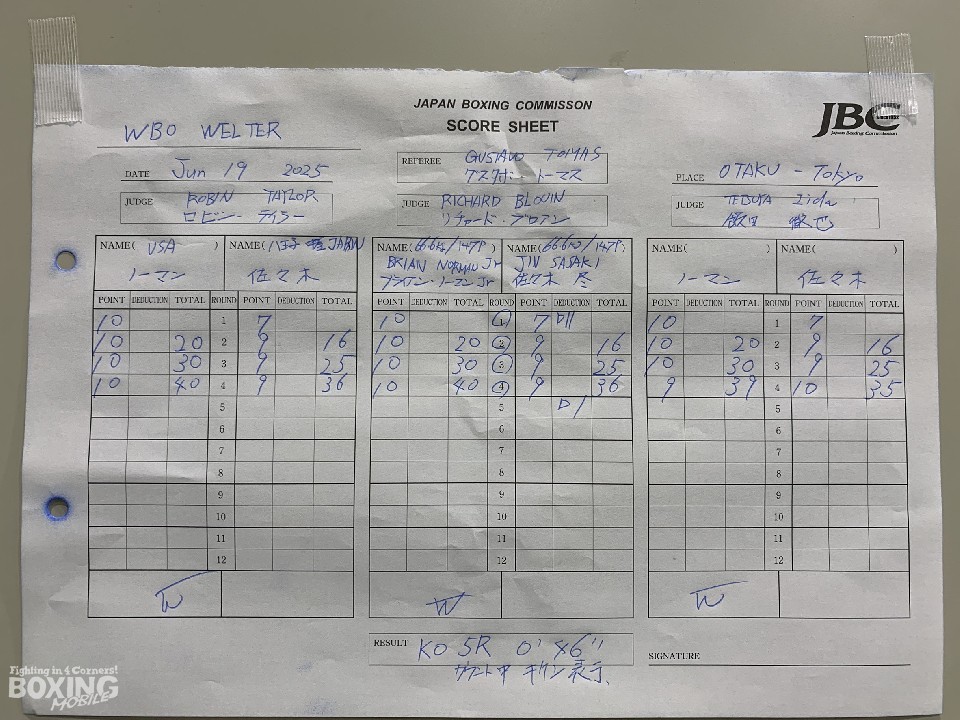 JAPAN BOXING COMMISSON
SCORE SHEET
JBC
Japan Boxing Commission
WBO WELTER
DATE Jun 19 2025
REFEREE GUSTAVO TOMAS
トーマス
PLACE OTAKU - Tokyo
JUDGE ROBIN TAYLOR
ロビン・テイラー
JUDGE RICHARD BLOUIN
リチャード・ブロアン
JUDGE TETSUYA Iida
飯田 徹也
NAME( USA ) NAME( 八王子 JAPAN
ノーマン 佐々木
NAME(66.6kg/147P) NAME(66.6kg/147P)
BRIAN NORMAN Jr JIN SASAKI
ブライアン・ノーマンJr 佐々木 尽
NAME( ) NAME( )
ノーマン 佐々木
POINT DEDUCTION TOTAL ROUND POINT DEDUCTION TOTAL
10 1 7
10 20 2 9 16
10 30 3 9 25
10 40 4 9 36
5
6
7
8
9
10
11
12
W
POINT DEDUCTION TOTAL ROUND POINT DEDUCTION TOTAL
10 1 7 D11
10 20 2 9 16
10 30 3 9 25
10 40 4 9 36
5 D1
6
7
8
9
10
11
12
W
POINT DEDUCTION TOTAL ROUND POINT DEDUCTION TOTAL
10 1 7
10 20 2 9 16
10 30 3 9 25
9 39 4 10 35
5
6
7
8
9
10
11
12
W
RESULT KO 5R 0'46"
カウント中 キケン表示
SIGNATURE
Fighting in 4 Corners!
BOXING
MOBILE